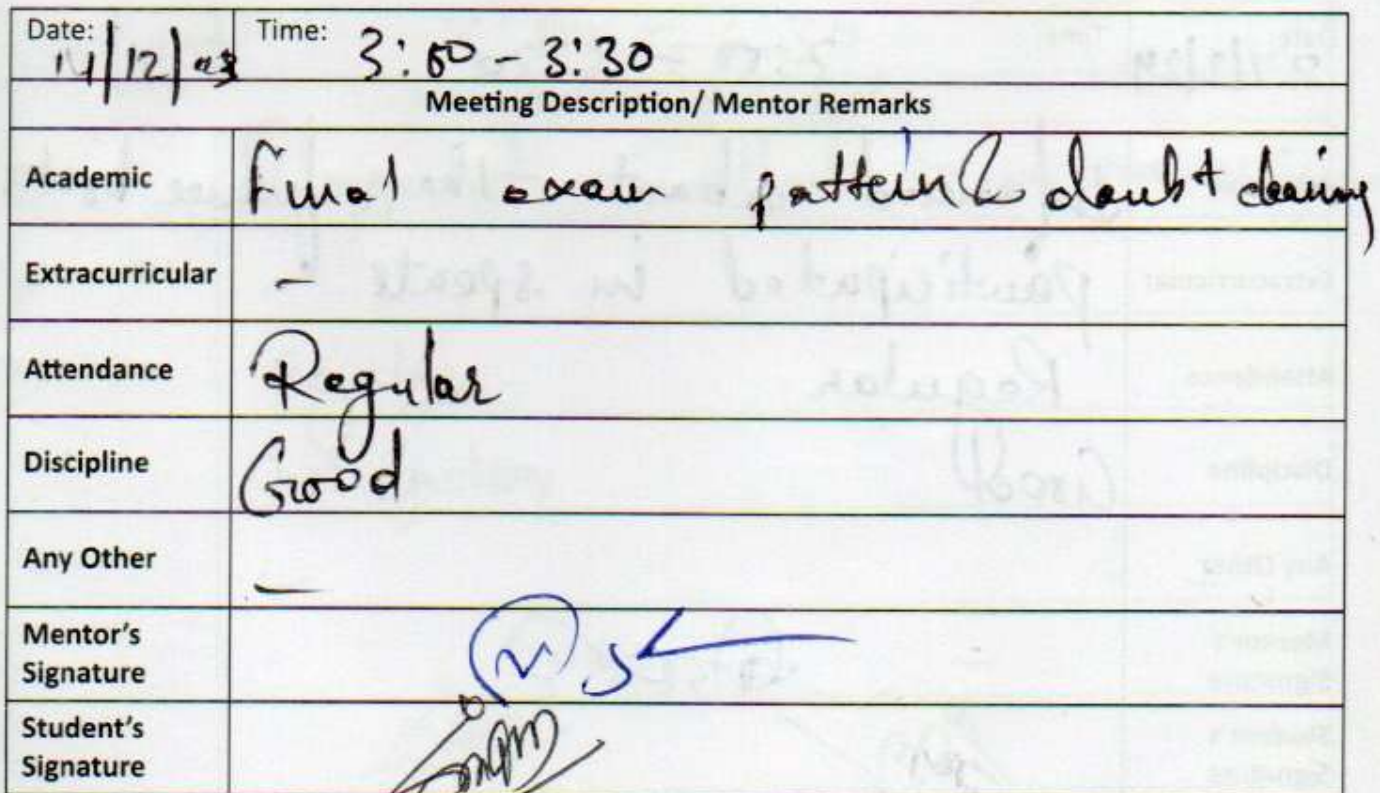 Date: 14/12/23 Time: 3:00 - 3:30
Meeting Description/ Mentor Remarks
Academic Final exam pattern & doubt clearing
Extracurricular -
Attendance Regular
Discipline Good
Any Other -
Mentor's
Signature
Student's
Signature